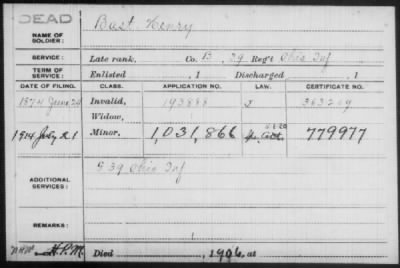 DEAD
NAME OF SOLDIER: Bast Henry
SERVICE: Late rank, Co. B, 39 Reg't Ohio Inf
TERM OF SERVICE: Enlisted , 1 Discharged , 1
DATE OF FILING. CLASS. APPLICATION NO. LAW. CERTIFICATE NO.
1874 June Invalid, 193888
Widow,
1914 July 21 Minor. 1,031,866 779977
ADDITIONAL SERVICES: G 39 Ohio Inf
REMARKS:
Died , 1906, at